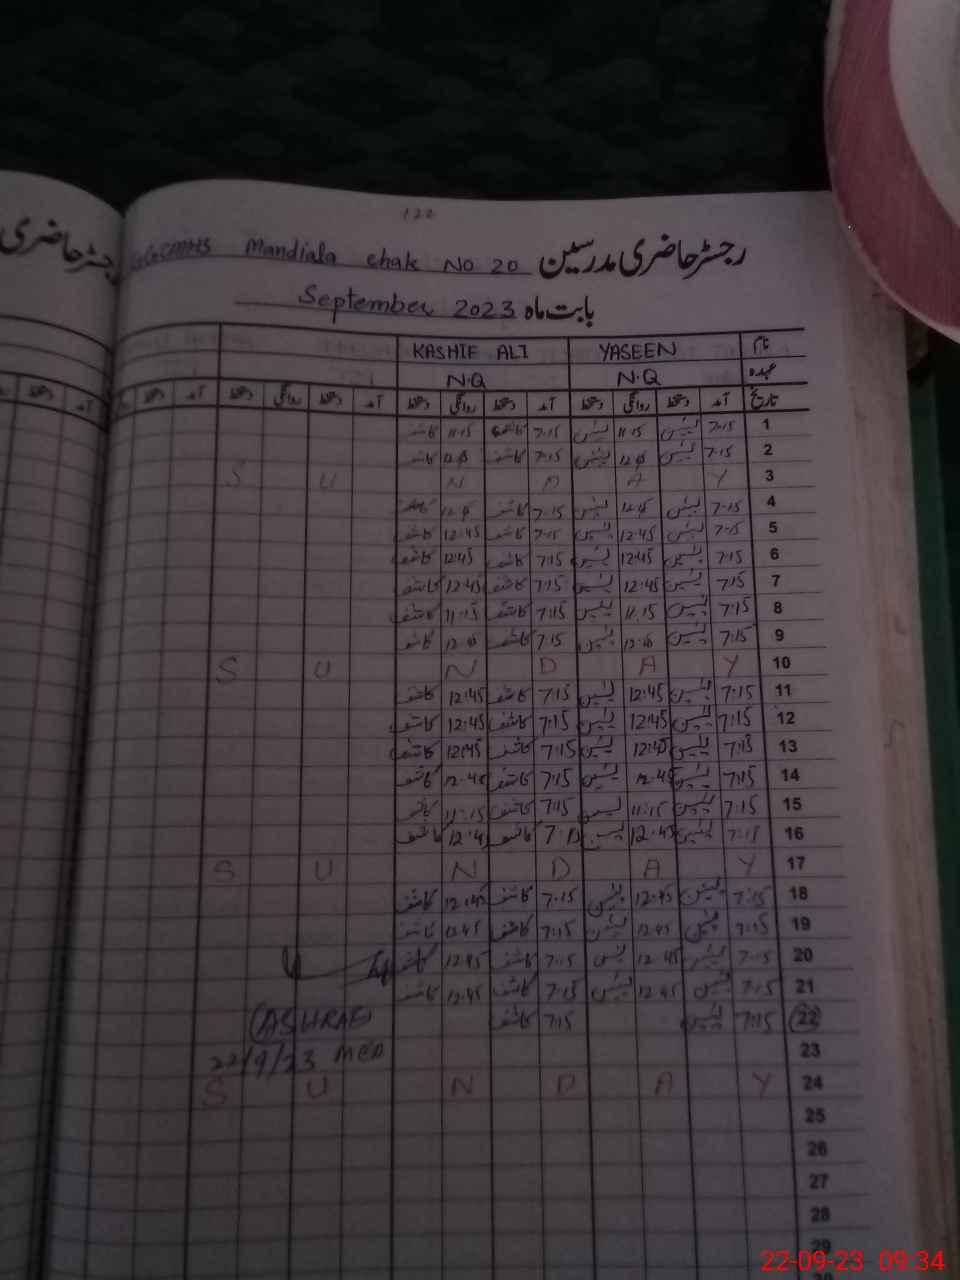 122
رجسٹر حاضری مدرسین GGCMHS Mandiala chak NO 20
رجسٹر حاضری
بابت ماہ September 2023
نام YASEEN KASHIF ALI
عہدہ N.Q N.Q
تاریخ آمد دستخط روانگی دستخط آمد دستخط روانگی دستخط آمد دستخط روانگی دستخط آمد دستخط
1 7-15 یٰسین 11-15 یٰسین 7-15 کاشف 11-15 کاشف
2 7-15 یٰسین یٰسین 7-15 کاشف کاشف
3 S U N D A Y
4 7-15 یٰسین یٰسین 7-15 کاشف
5 7-15 یٰسین 12:45 یٰسین 7-15 کاشف 12:45 کاشف
6 7:15 یٰسین 12:45 یٰسین 7:15 کاشف 12:45 کاشف
7 7:15 یٰسین 12:45 یٰسین 7:15 کاشف 12:45 کاشف
8 7:15 یٰسین 11.15 یٰسین 7:15 کاشف 11:15 کاشف
9 7:15 یٰسین یٰسین 7:15 کاشف کاشف
10 S U N D A Y
11 7:15 یٰسین 12:45 یٰسین 7:15 کاشف 12:45 کاشف
12 7:15 یٰسین 12:45 یٰسین 7:15 کاشف 12:45 کاشف
13 7:15 یٰسین 12:45 یٰسین 7:15 کاشف 12:45 کاشف
14 7:15 یٰسین 12-45 یٰسین 7:15 کاشف 12-45 کاشف
15 7:15 یٰسین 11:15 یٰسین 7:15 کاشف 11:15 کاشف
16 7:15 یٰسین 12:45 یٰسین 7:15 کاشف کاشف
17 S U N D A Y
18 7:15 یٰسین 12:45 یٰسین 7.15 کاشف 12:45 کاشف
19 7:15 یٰسین 12.45 یٰسین 7:15 کاشف 12.45 کاشف
20 7:15 یٰسین 12-45 یٰسین 7:15 کاشف 12.45 کاشف
21 7:15 یٰسین 12-45 یٰسین 7:15 کاشف 12.45 کاشف
22 7:15 یٰسین 7:15 کاشف (ASHRAF)
23 22/9/23 MEO
24 S U N D A Y
25
26
27
28
29
22-09-23 09:34